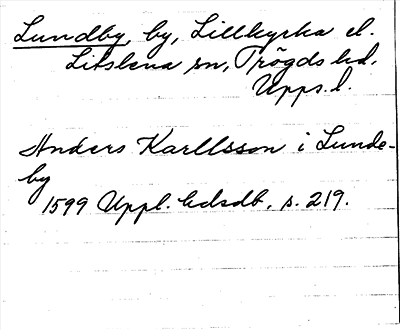 Lundby, by, Lillkyrka el.
Litslena sn, Trögds hd,
Upps. l.
Anders Karllsson i Lunde-
by
1599 Uppl. hdsdb. s. 219.